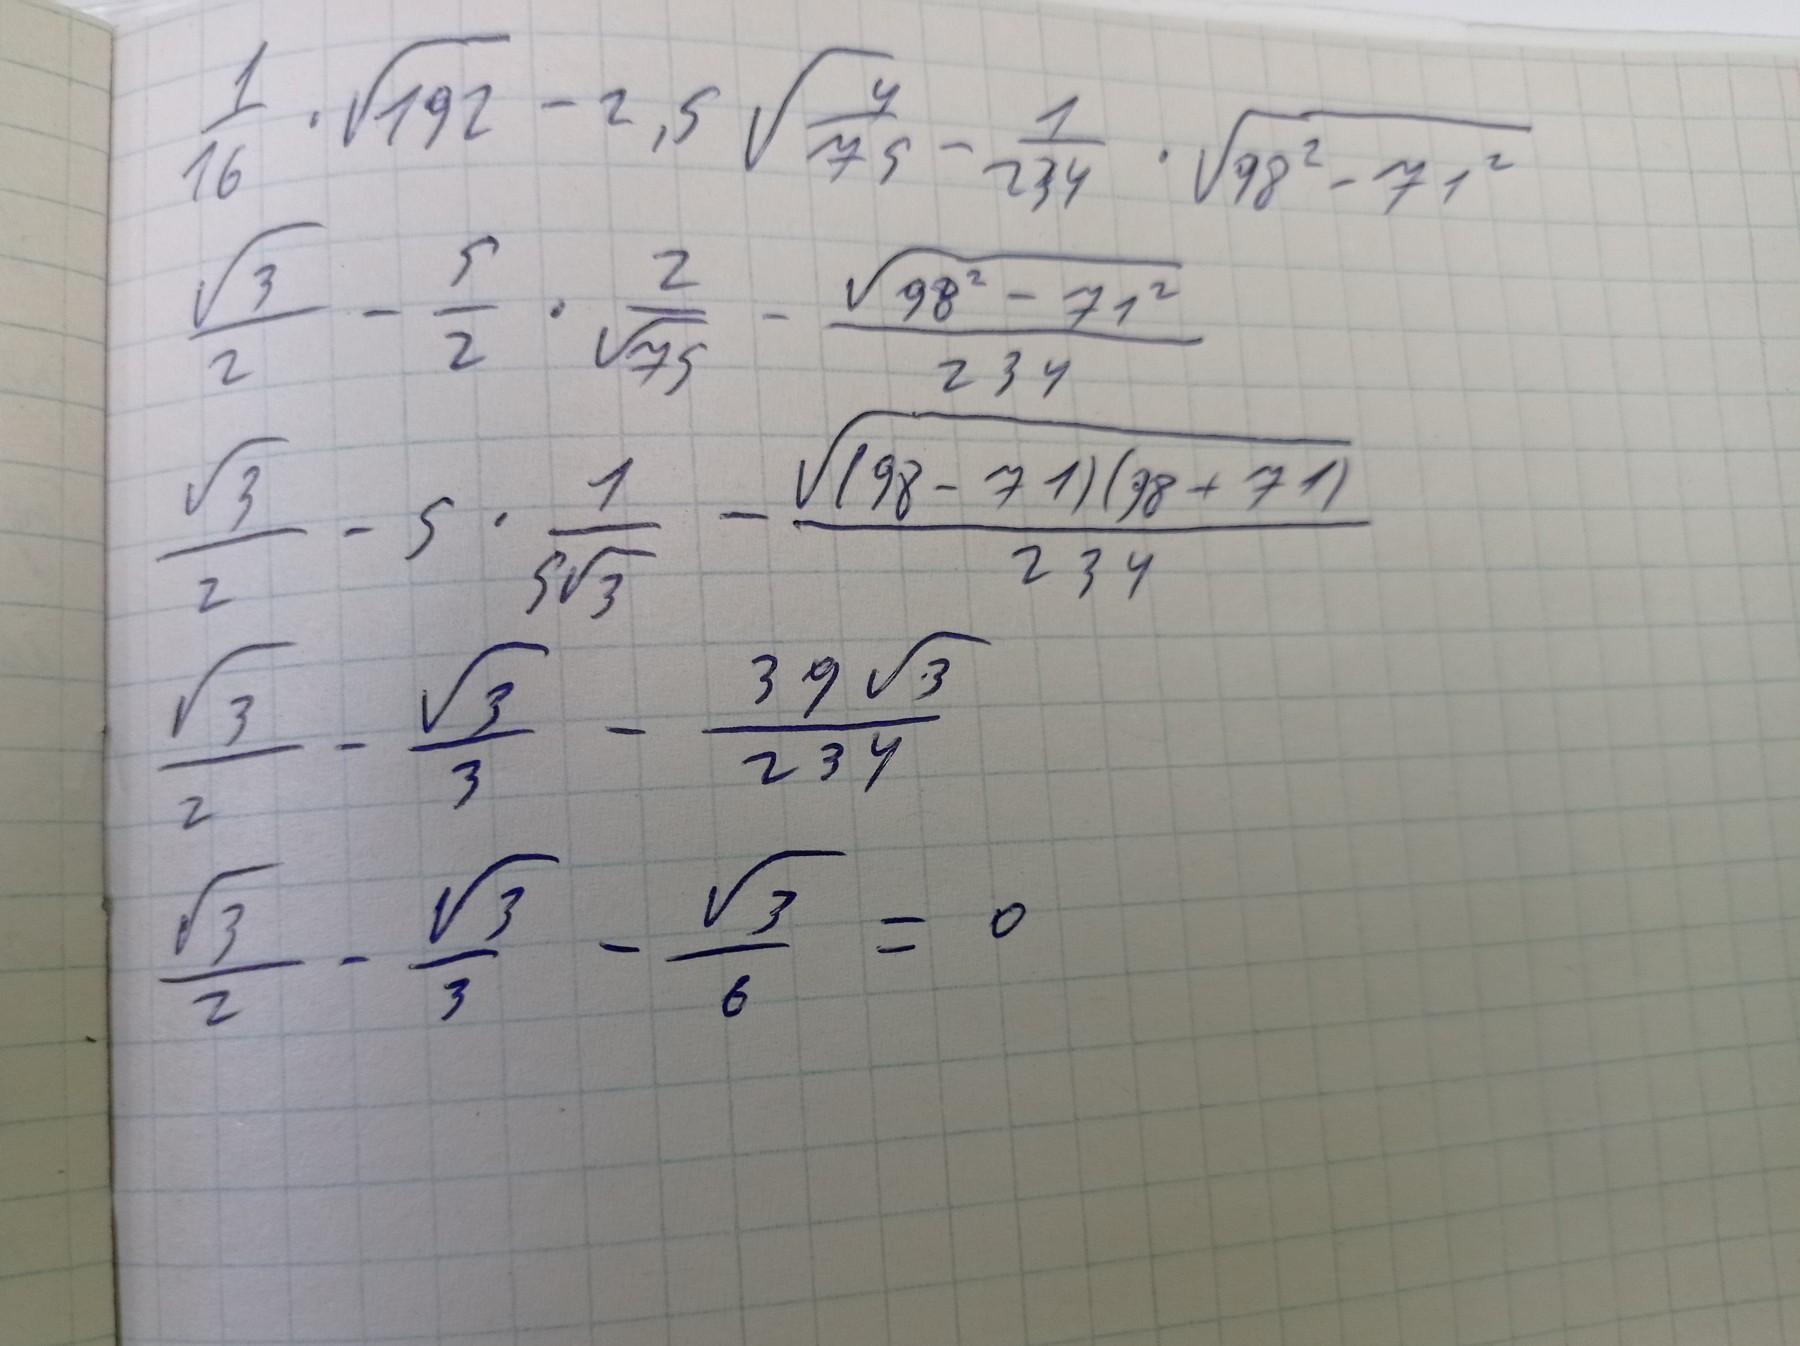 1/16 · √192 - 2,5 √(4/75) - 1/234 · √(98² - 71²)
√3/2 - 5/2 · 2/√75 - √(98² - 71²)/234
√3/2 - 5 · 1/(5√3) - √((98 - 71)(98 + 71))/234
√3/2 - √3/3 - 39√3/234
√3/2 - √3/3 - √3/6 = 0